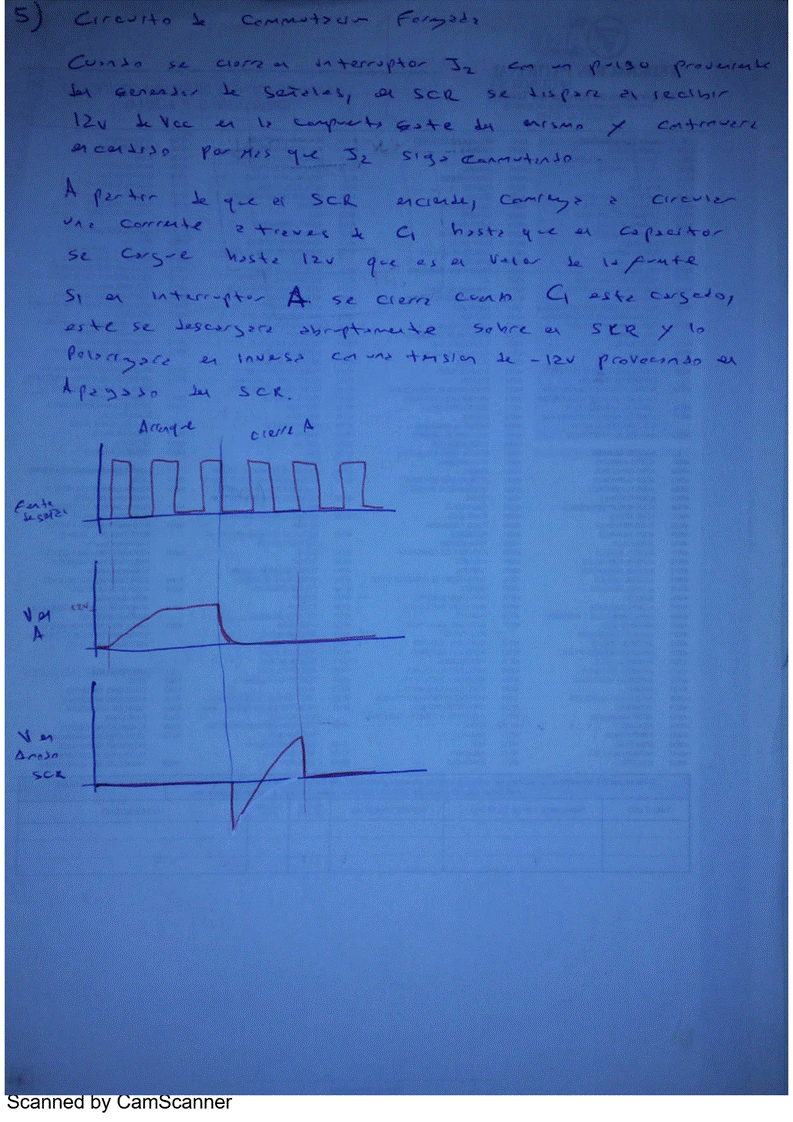 5) Circuito de Conmutacion Forzada
Cuando se cierra el interruptor J2 con un pulso proveniente
del Generador de Señales, el SCR se dispara al recibir
12v de Vcc en la compuerta Gate del mismo y continuara
encendido por mas que J2 siga conmutando.
A partir de que el SCR enciende, comienza a circular
una corriente a traves de C1 hasta que el capacitor
se cargue hasta 12v que es el valor de la fuente
Si el interruptor A se cierra cuando C1 este cargado,
este se descargara abruptamente sobre el SCR y lo
Polarizara en inversa con una tension de -12v provocando el
Apagado del SCR.
Arranque cierre A
Fuente
12v
V en
A
V en
Anodo
SCR
Scanned by CamScanner